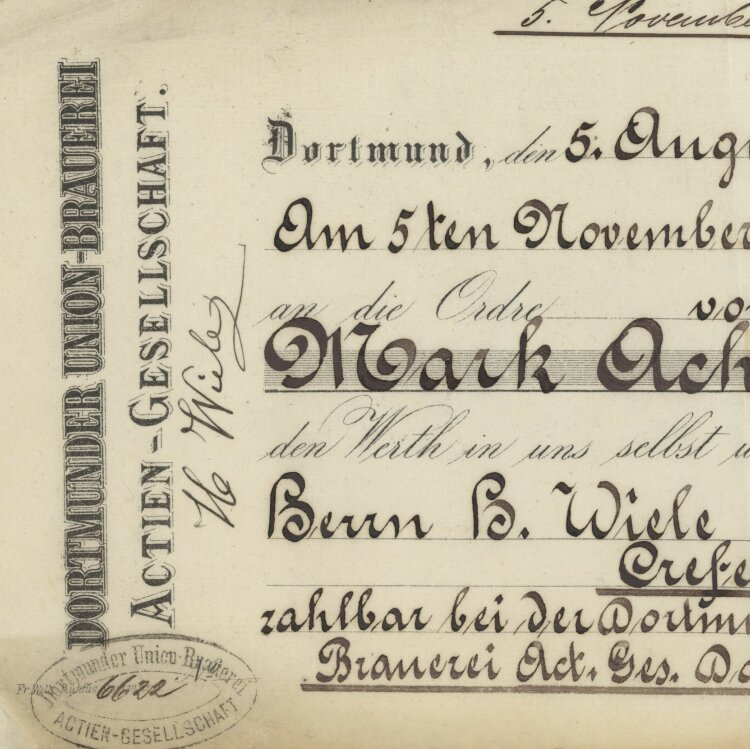 DORTMUNDER UNION-BRAUEREI
ACTIEN-GESELLSCHAFT.
H Wiele
5. Novemb
Dortmund, den 5. Aug
Am 5ten November
an die Ordre vo
Mark Ach
den Werth in uns selbst u
Herrn H. Wiele
Crefe
zahlbar bei der Dortmu
Brauerei Act. Ges. Do
Dortmunder Union-Brauerei
6622
ACTIEN-GESELLSCHAFT